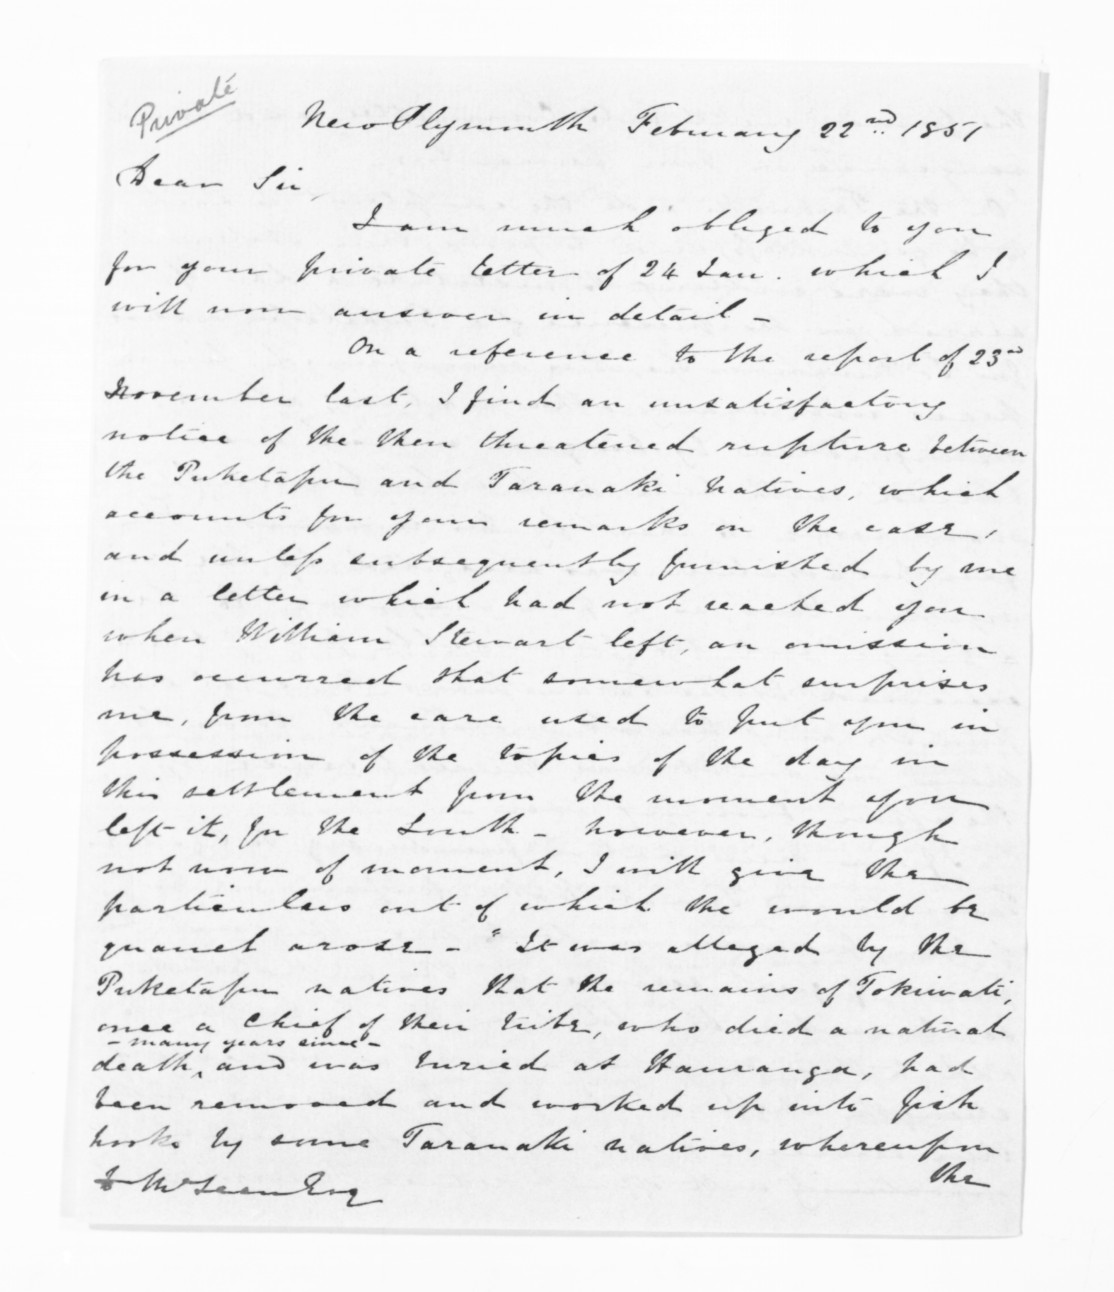 Private
New Plymouth February 22nd. 1851
Dear Sir,
I am much obliged to you
for your private letter of 24 Jan. which I
will now answer in detail -
On a reference to the report of 23rd
November last, I find an unsatisfactory
notice of the then threatened rupture between
the Puketapu and Taranaki Natives, which
accounts for your remarks on the case,
and unless subsequently furnished by me
in a letter which had not reached you
when William Stewart left, an omission
has occurred that somewhat surprises
me, from the care used to put you in
possession of the topics of the day in
this settlement from the moment you
left it, for the South - however, though
not now of moment, I will give the
particulars out of which the would be
quarrel arose - "It was alleged by the
Puketapu natives that the remains of Tokiwati,
once a Chief of their tribe, who died a natural
- many years since -
death, and was buried at Hauranga, had
been removed and worked up into fish
hooks by some Taranaki natives, whereupon
the
McLean Esq